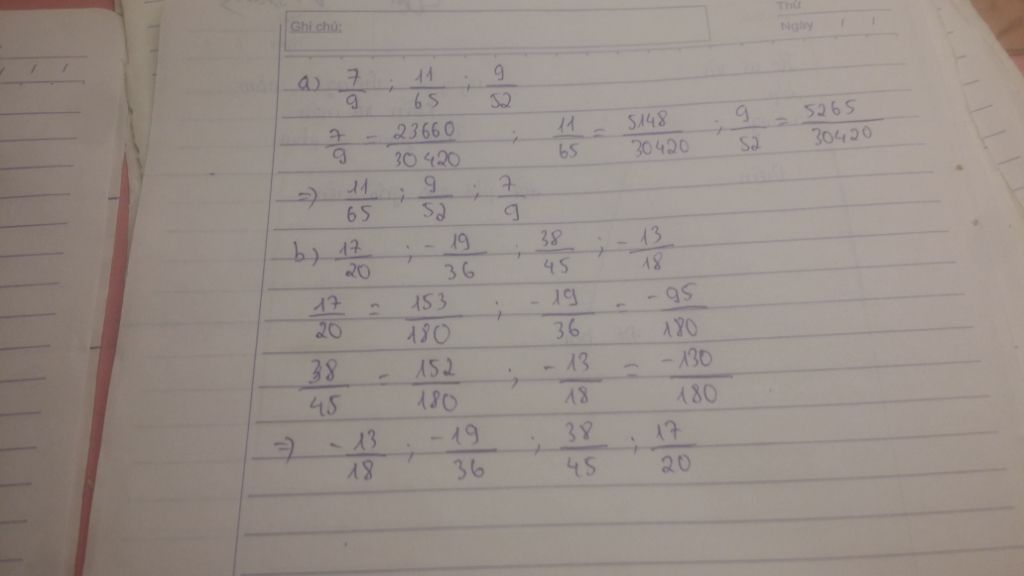 Thứ
Ghi chú: Ngày / /
a) 7/9 ; 11/65 ; 9/52
7/9 = 23660/30420 ; 11/65 = 5148/30420 ; 9/52 = 5265/30420
=) 11/65 ; 9/52 ; 7/9
b) 17/20 ; -19/36 ; 38/45 ; -13/18
17/20 = 153/180 ; -19/36 = -95/180
38/45 = 152/180 ; -13/18 = -130/180
=) -13/18 ; -19/36 ; 38/45 ; 17/20